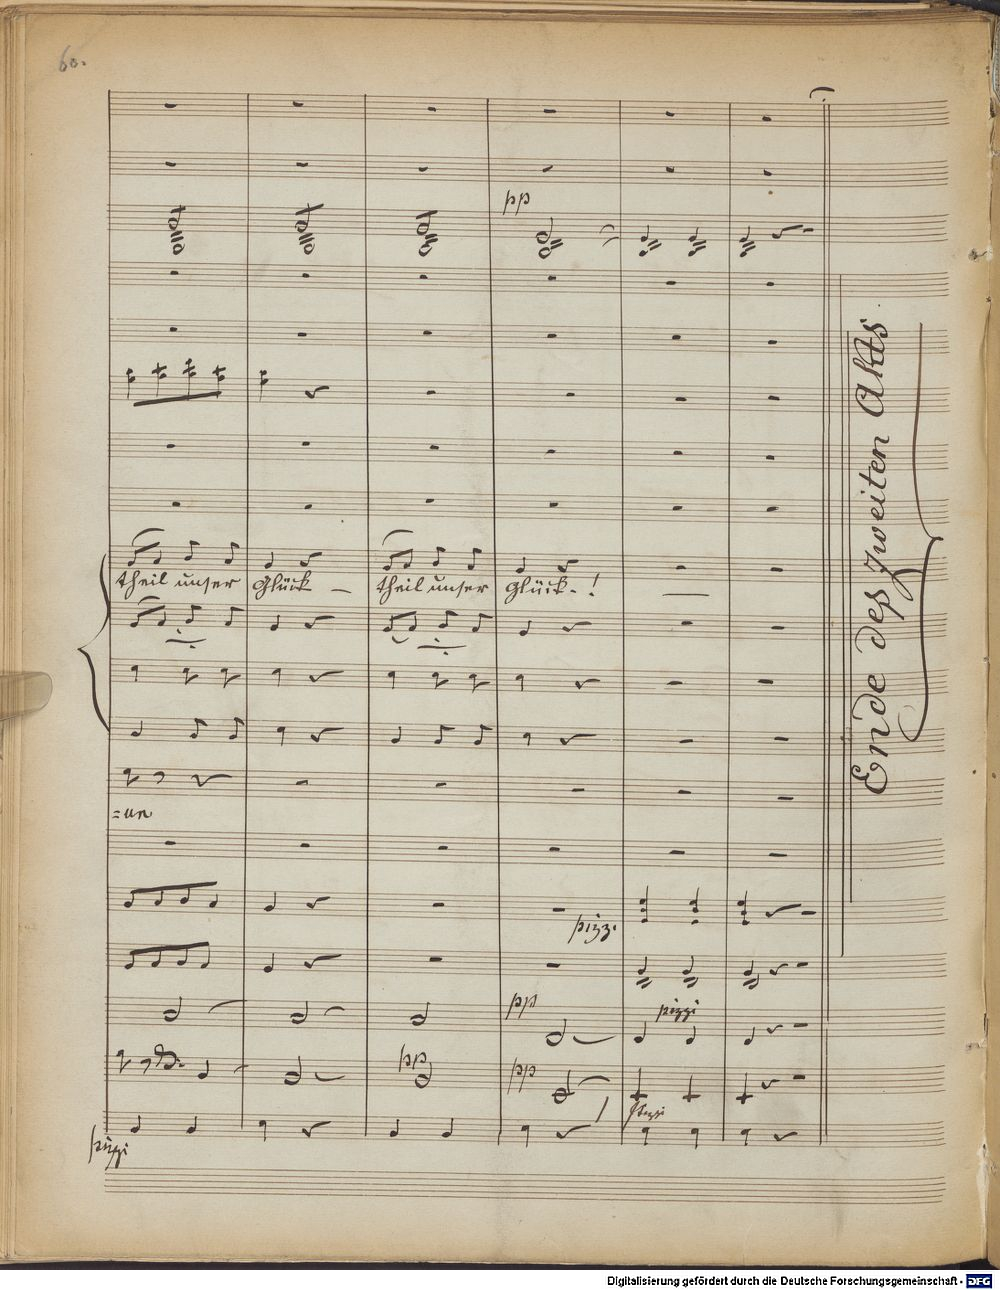 60.
pp
theil unser Glück – theil unser Glück. !
=un
pizz.
pp
pizzi
pp
pp
pizzi
pizzi
Ende des zweiten Akts
Digitalisierung gefördert durch die Deutsche Forschungsgemeinschaft - DFG